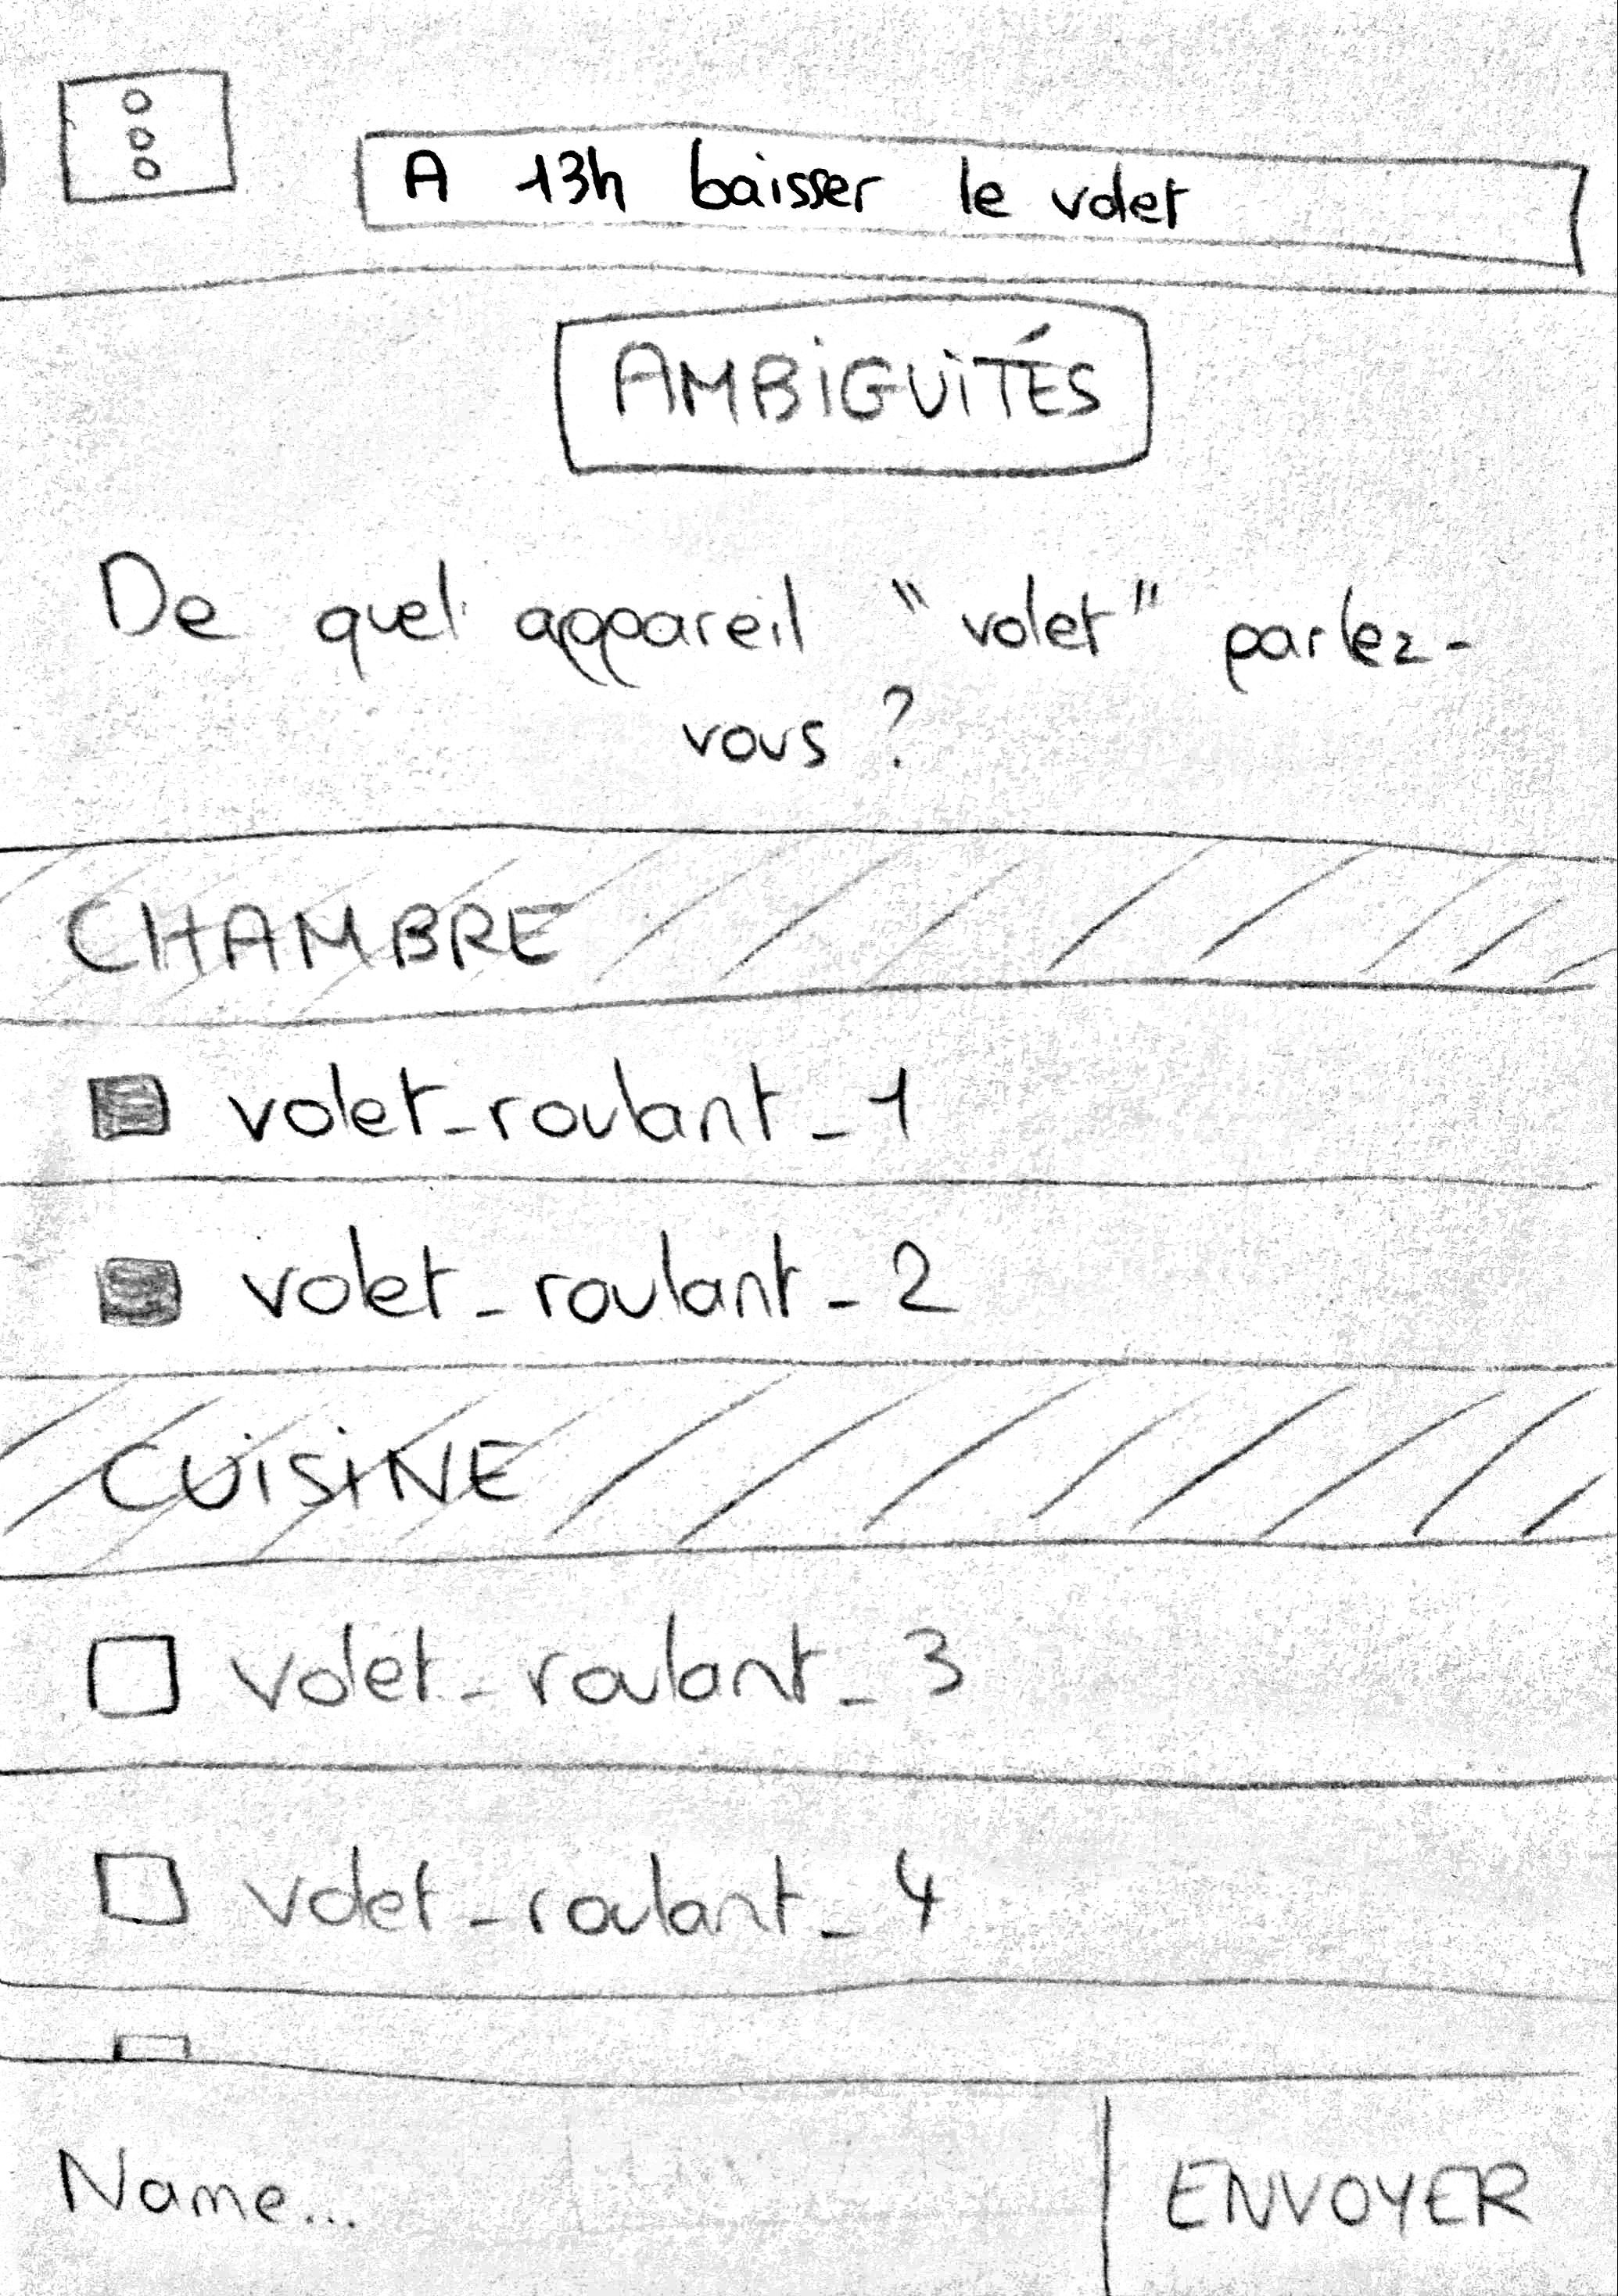 A 13h baisser le volet
AMBIGUITÉS
De quel appareil "volet" parlez-
vous ?
CHAMBRE
volet_roulant_1
volet_roulant_2
CUISINE
volet_roulant_3
volet_roulant_4
Name...
ENVOYER